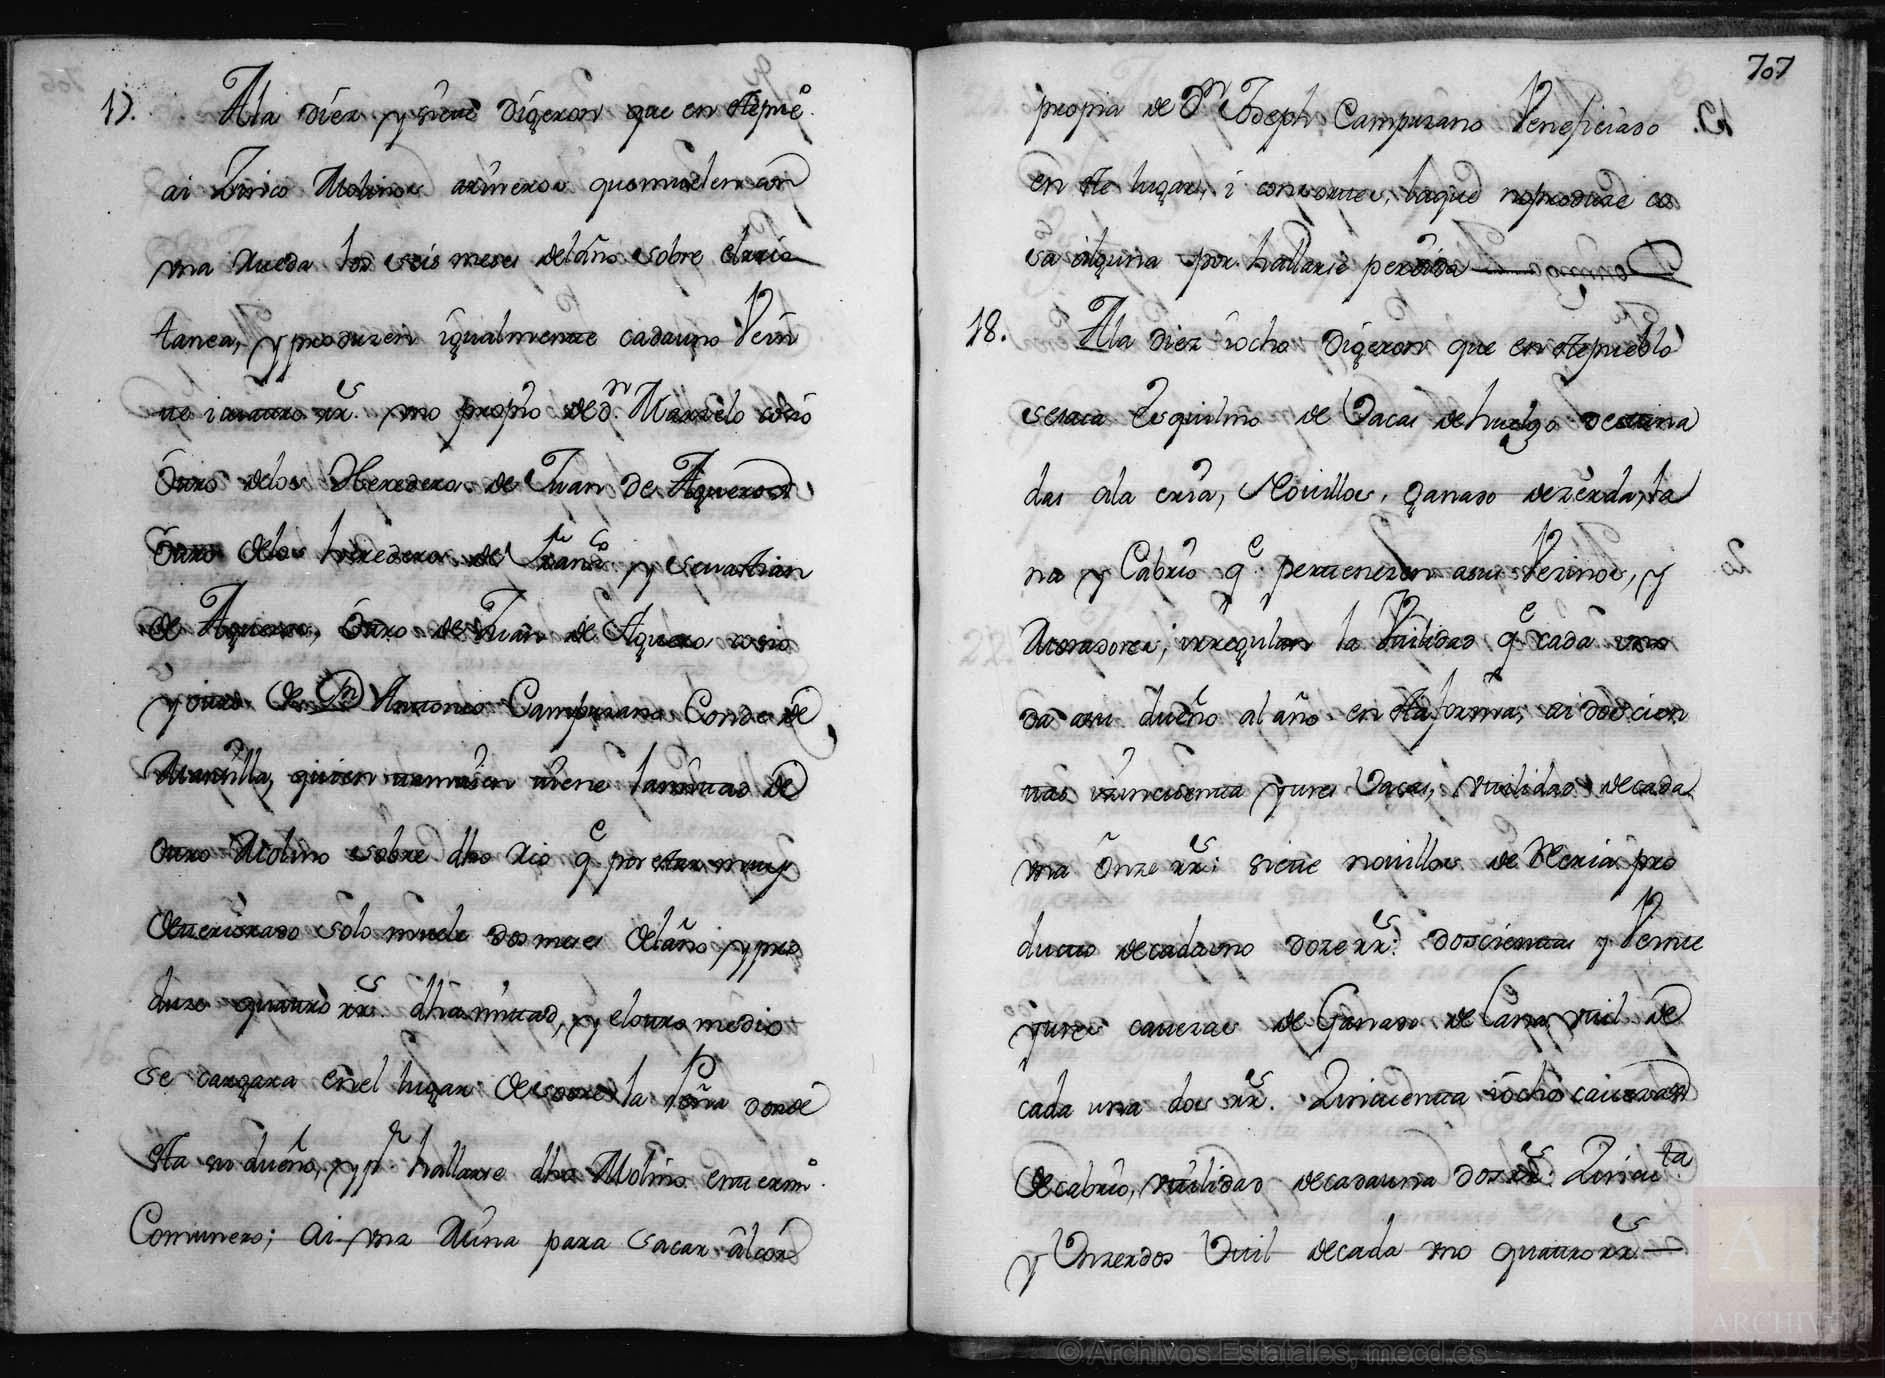 17. Ala diez y siete digeron que en ste pue.º
ai Zinco Molinos arineros que muelen con
una rueda los seis meses del año sobre el rio
tanea, y produzen igualmente cada uno Vein
te i cuatro rr.s uno propio de d.n Marzelo cosio
Ôtro delos Herederos de Juan De Aguero
Ôtro delos herederos de Fran.co y Sevastian
de Aguero, Ôtro de Juan de Aguero cosio
y otro de Dn Antonio Campuzano Conde de
Mansilla, quien tamvien tiene la mitad de
otro Molino sobre dho Rio q.e por estar muy
deteriorado solo muele dos meses del año, y pro
duze quatro rr.s dha mitad, y el otro medio
se cargara en el lugar de sobre la Peña donde
sta su dueño, y p.r hallarse dho Molino en termº.
Comunero; ai una Ruina para sacar al cor
707
propia de D.n Joseph Campuzano Veneficiado
en ste lugar, i consortes, la que no produze co
sa alguna por hallarse perdida
18. Ala diez i ocho digeron que en ste pueblo
se saca Esquilmo de Vacas de huelgo destina
das ala cria, Novillos, ganado de zerda, la
na y Cabrio q.e pertenezen a sus Vezinos, y
Moradores, i rregulan la Vtilidad q.e cada uno
da a su dueño al año en sta forma, ai doscien
tas i zincuenta y tres Vacas, vtilidad de cada
una Ônze rr.s: siete novillos de Reria pro
ducto de cada uno doze rr.s: doscientas y Veinte
y tres cavezas de Ganado de lana vtil de
cada una dos rr.s. Zincuenta i ocho cavezas
de cabrio, vtilidad de cada una dos rr.s: Zincu.ta
y Un zerdos Vtil de cada uno quatro rr.s
© Archivos Estatales, mecd.es
ARCHIVOS
ESTATALES